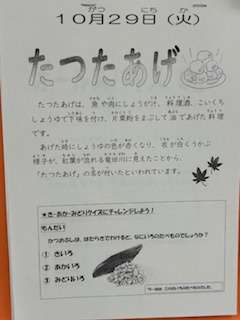 10月29日（火）
たつたあげ
たつたあげは、魚や肉にしょうがけ、料理酒、こいくち
しょうゆで下味を付け、片栗粉をまぶして油であげた料理
です。
あげた時にしょうゆの色が赤くなり、衣が白くうかぶ
様子が、紅葉が流れる竜田川に見えたことから、
「たつたあげ」の名が付いたといわれています。
★き・あか・みどりクイズにチャレンジしよう！
もんだい
かつおぶしは、はたらきでわけると、なにいろのたべものでしょうか？
① きいろ
② あかいろ
③ みどりいろ